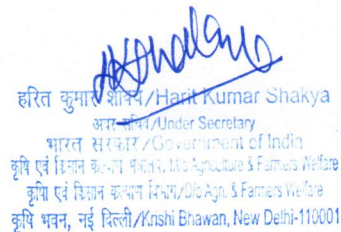 हरित कुमार शाक्य/Harit Kumar Shakya
अवर सचिव/Under Secretary
भारत सरकार/Government of India
कृषि एवं किसान कल्याण मंत्रालय, M/o Agriculture & Farmers Welfare
कृषि एवं किसान कल्याण विभाग/D/o Agri. & Farmers Welfare
कृषि भवन, नई दिल्ली/Krishi Bhawan, New Delhi-110001